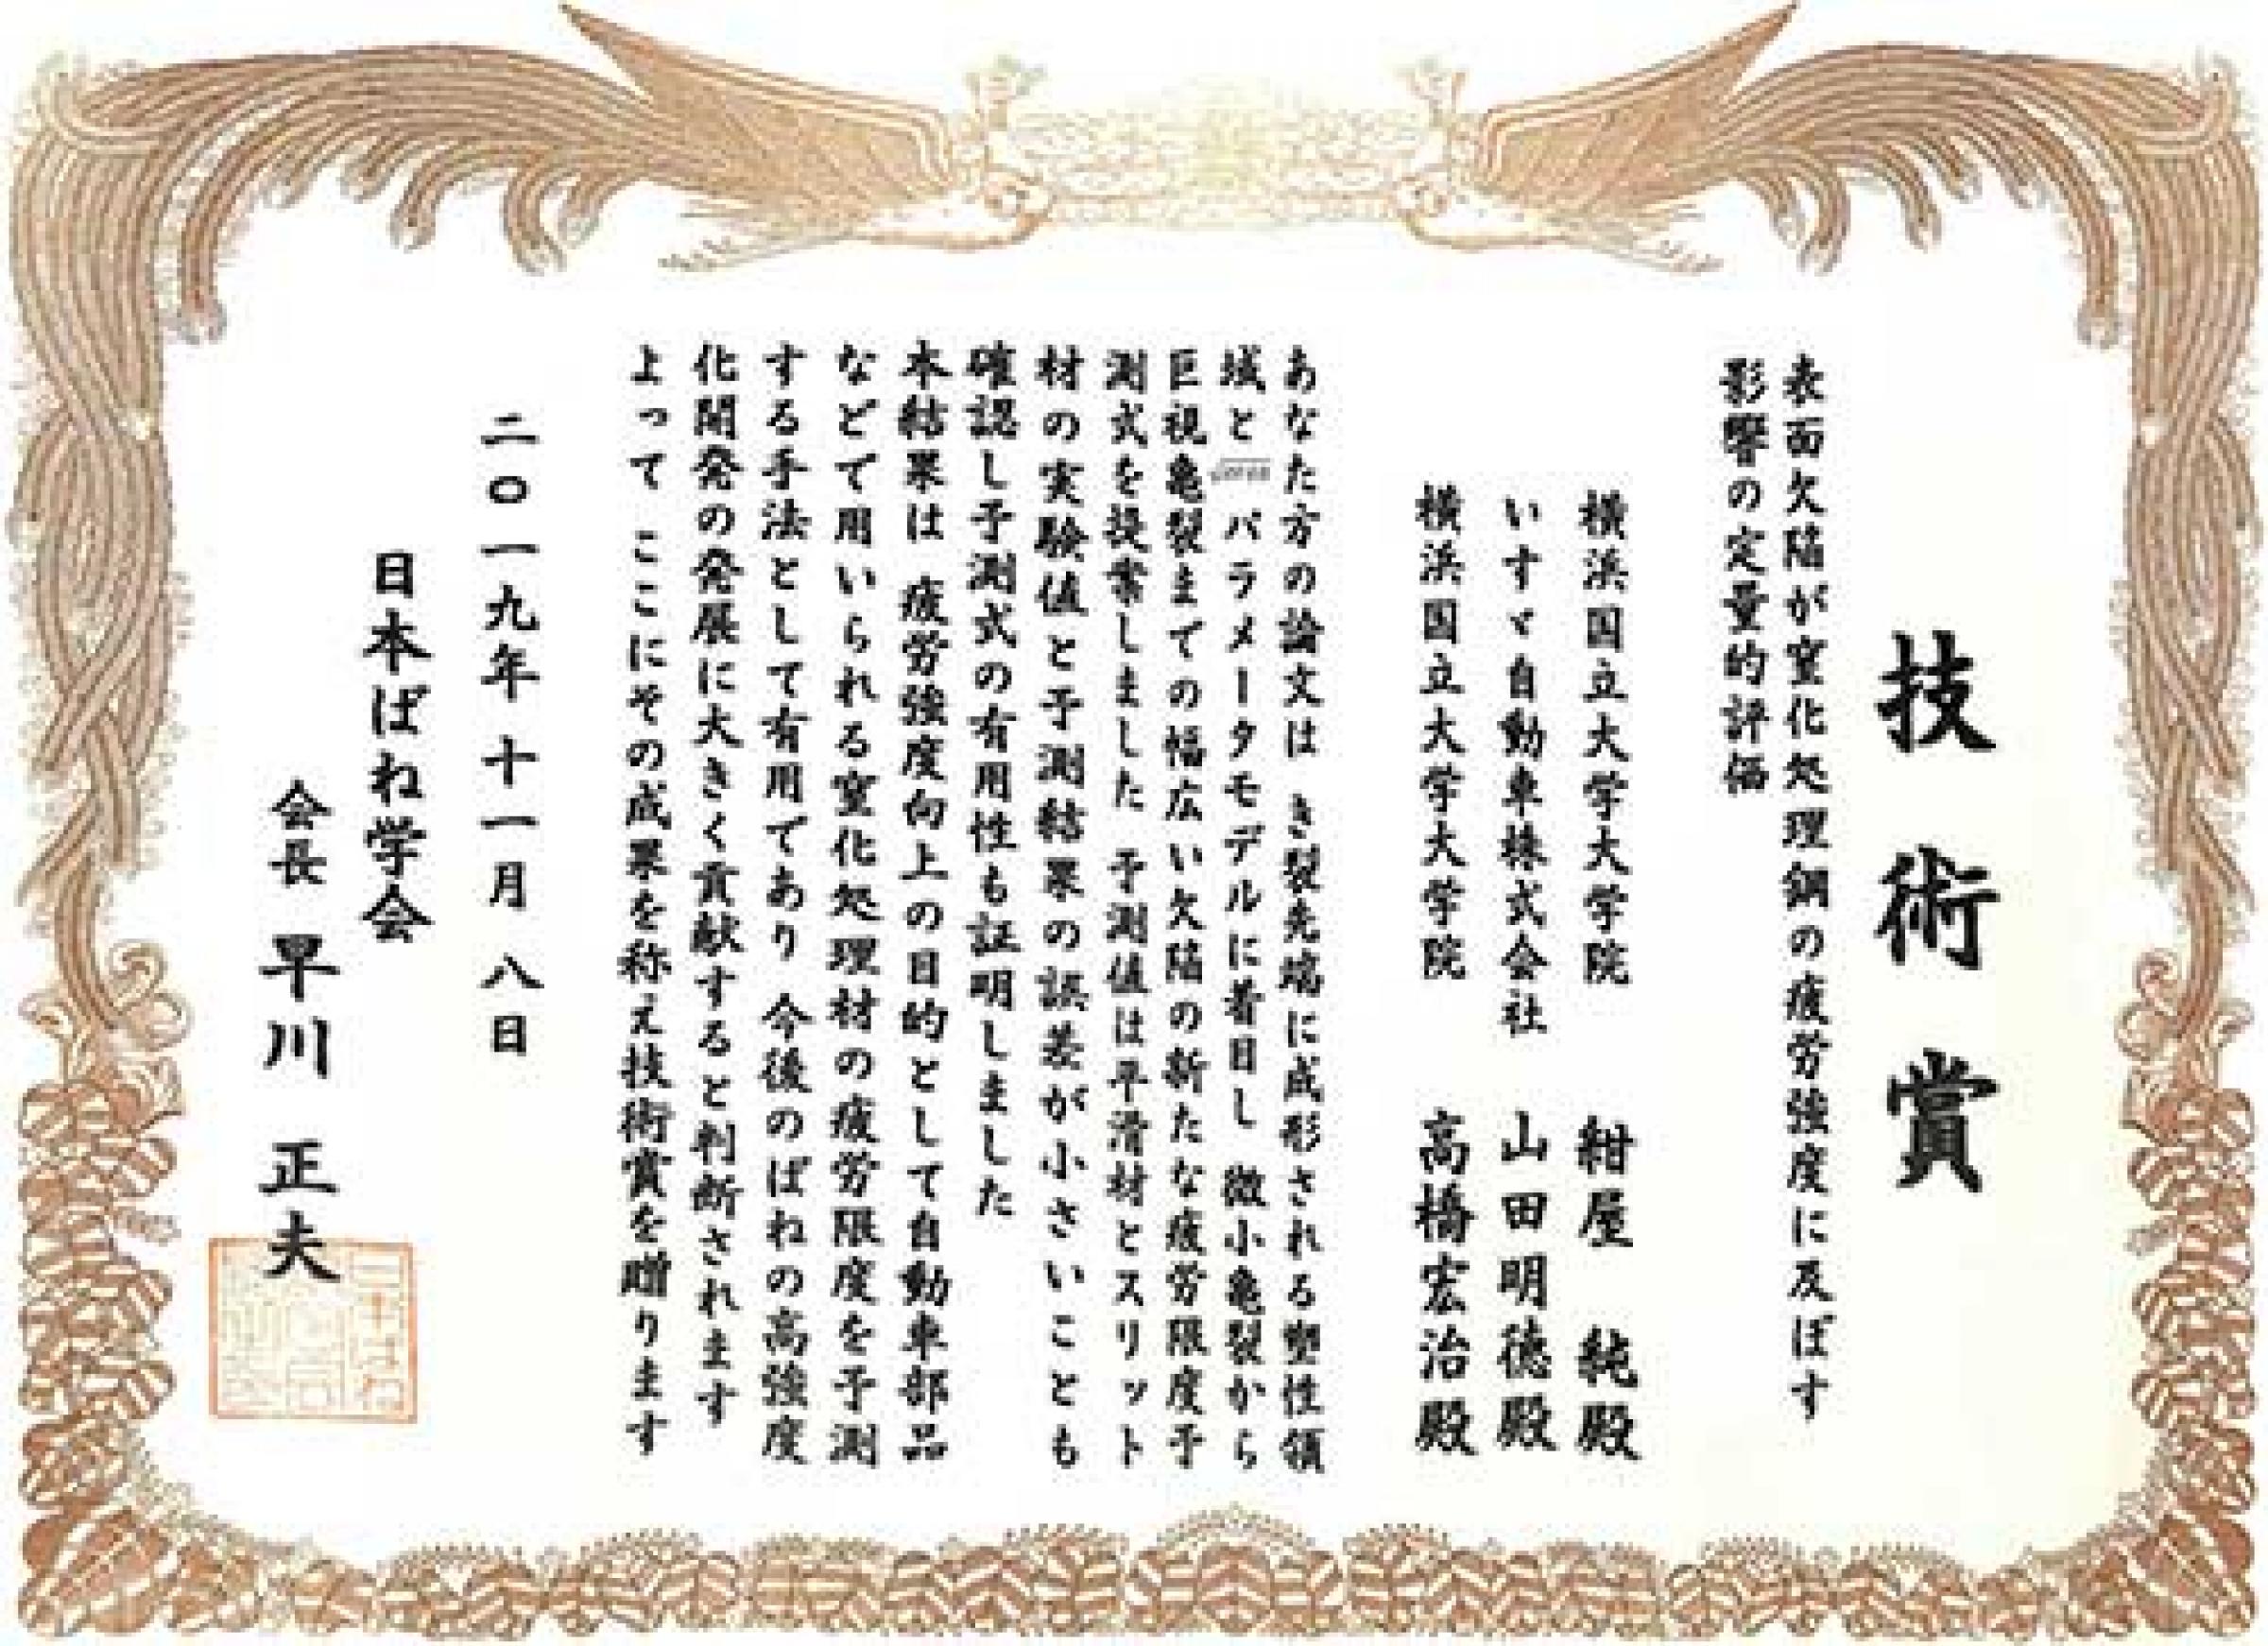 技術賞
表面欠陥が窒化処理鋼の疲労強度に及ぼす
影響の定量的評価
横浜国立大学大学院 紺屋 純殿
いすゞ自動車株式会社 山田明徳殿
横浜国立大学大学院 高橋宏治殿
あなた方の論文は き裂先端に成形される塑性領
域と パラメータモデルに着目し 微小亀裂から
巨視亀裂までの幅広い欠陥の新たな疲労限度予
測式を提案しました 予測値は平滑材とスリット
材の実験値と予測結果の誤差が小さいことも
確認し予測式の有用性も証明しました
本結果は 疲労強度向上の目的として自動車部品
などで用いられる窒化処理材の疲労限度を予測
する手法として有用であり 今後のばねの高強度
化開発の発展に大きく貢献すると判断されます
よって ここにその成果を称え技術賞を贈ります
二〇一九年十一月八日
日本ばね学会
会長 早川 正夫